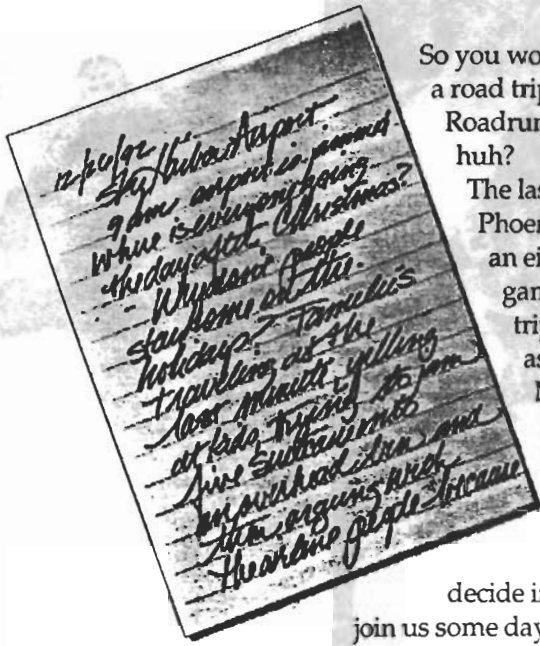 12/26/92
Sky Harbor Airport
9 am airport is jammed
where is everyone going
the day after Christmas?
Why don't people
stay home on the
holidays? Families
traveling at the
last minute yelling
at kids, trying to jam
five suitcases into
an overhead bin and
then arguing with
the airline people because
So you wo
a road trip
Roadrun
huh?
The las
Phoen
an ei
gam
trip
as
decide i
join us some day